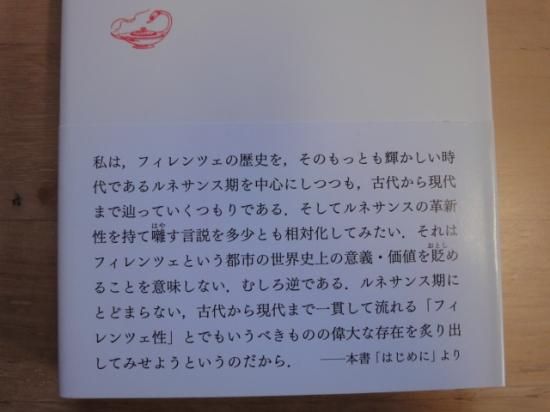 私は，フィレンツェの歴史を，そのもっとも輝かしい時
代であるルネサンス期を中心にしつつも，古代から現代
まで辿っていくつもりである．そしてルネサンスの革新
性を持て囃す言説を多少とも相対化してみたい．それは
フィレンツェという都市の世界史上の意義・価値を貶め
ることを意味しない．むしろ逆である．ルネサンス期に
とどまらない，古代から現代まで一貫して流れる「フィ
レンツェ性」とでもいうべきものの偉大な存在を炙り出
してみせようというのだから．　――本書「はじめに」より